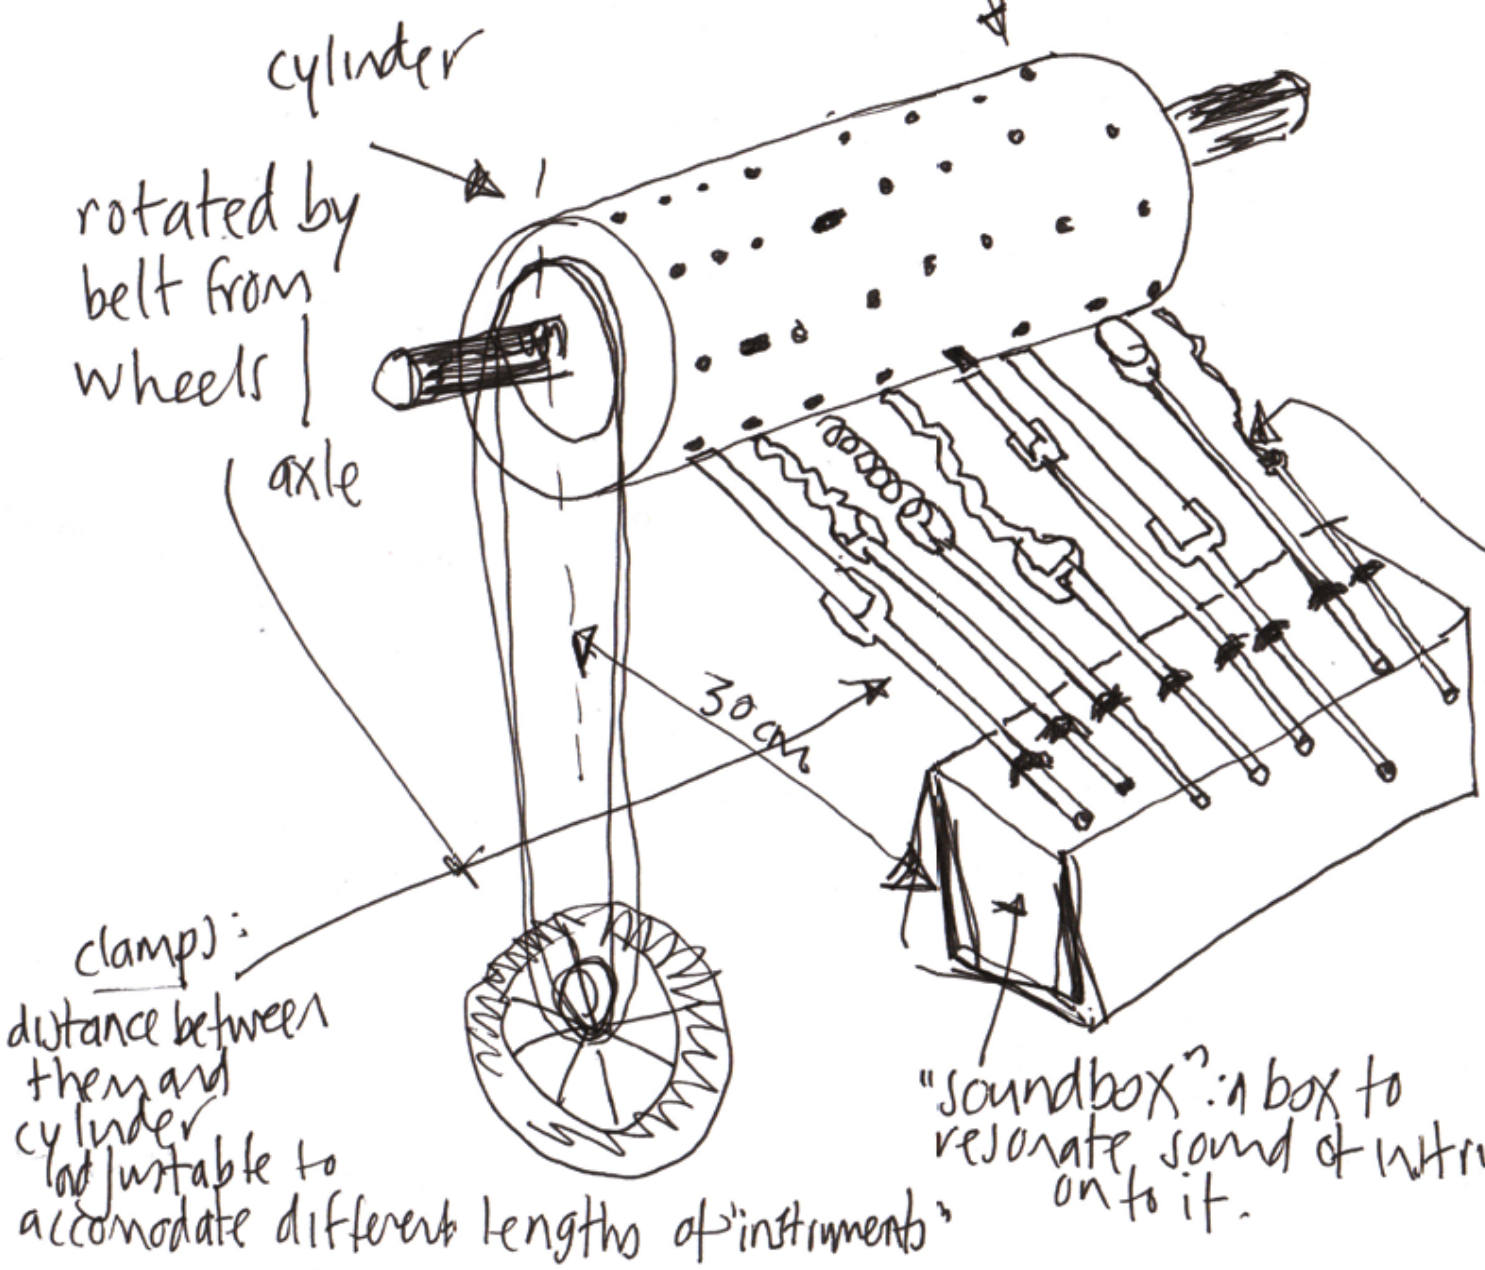 cylinder
rotated by
belt from
wheels
axle
30cm
clamps:
distance between
them and
cylinder
adjustable to
accomodate different lengths of "instruments"
"soundbox": a box to
resonate sound of
onto it.